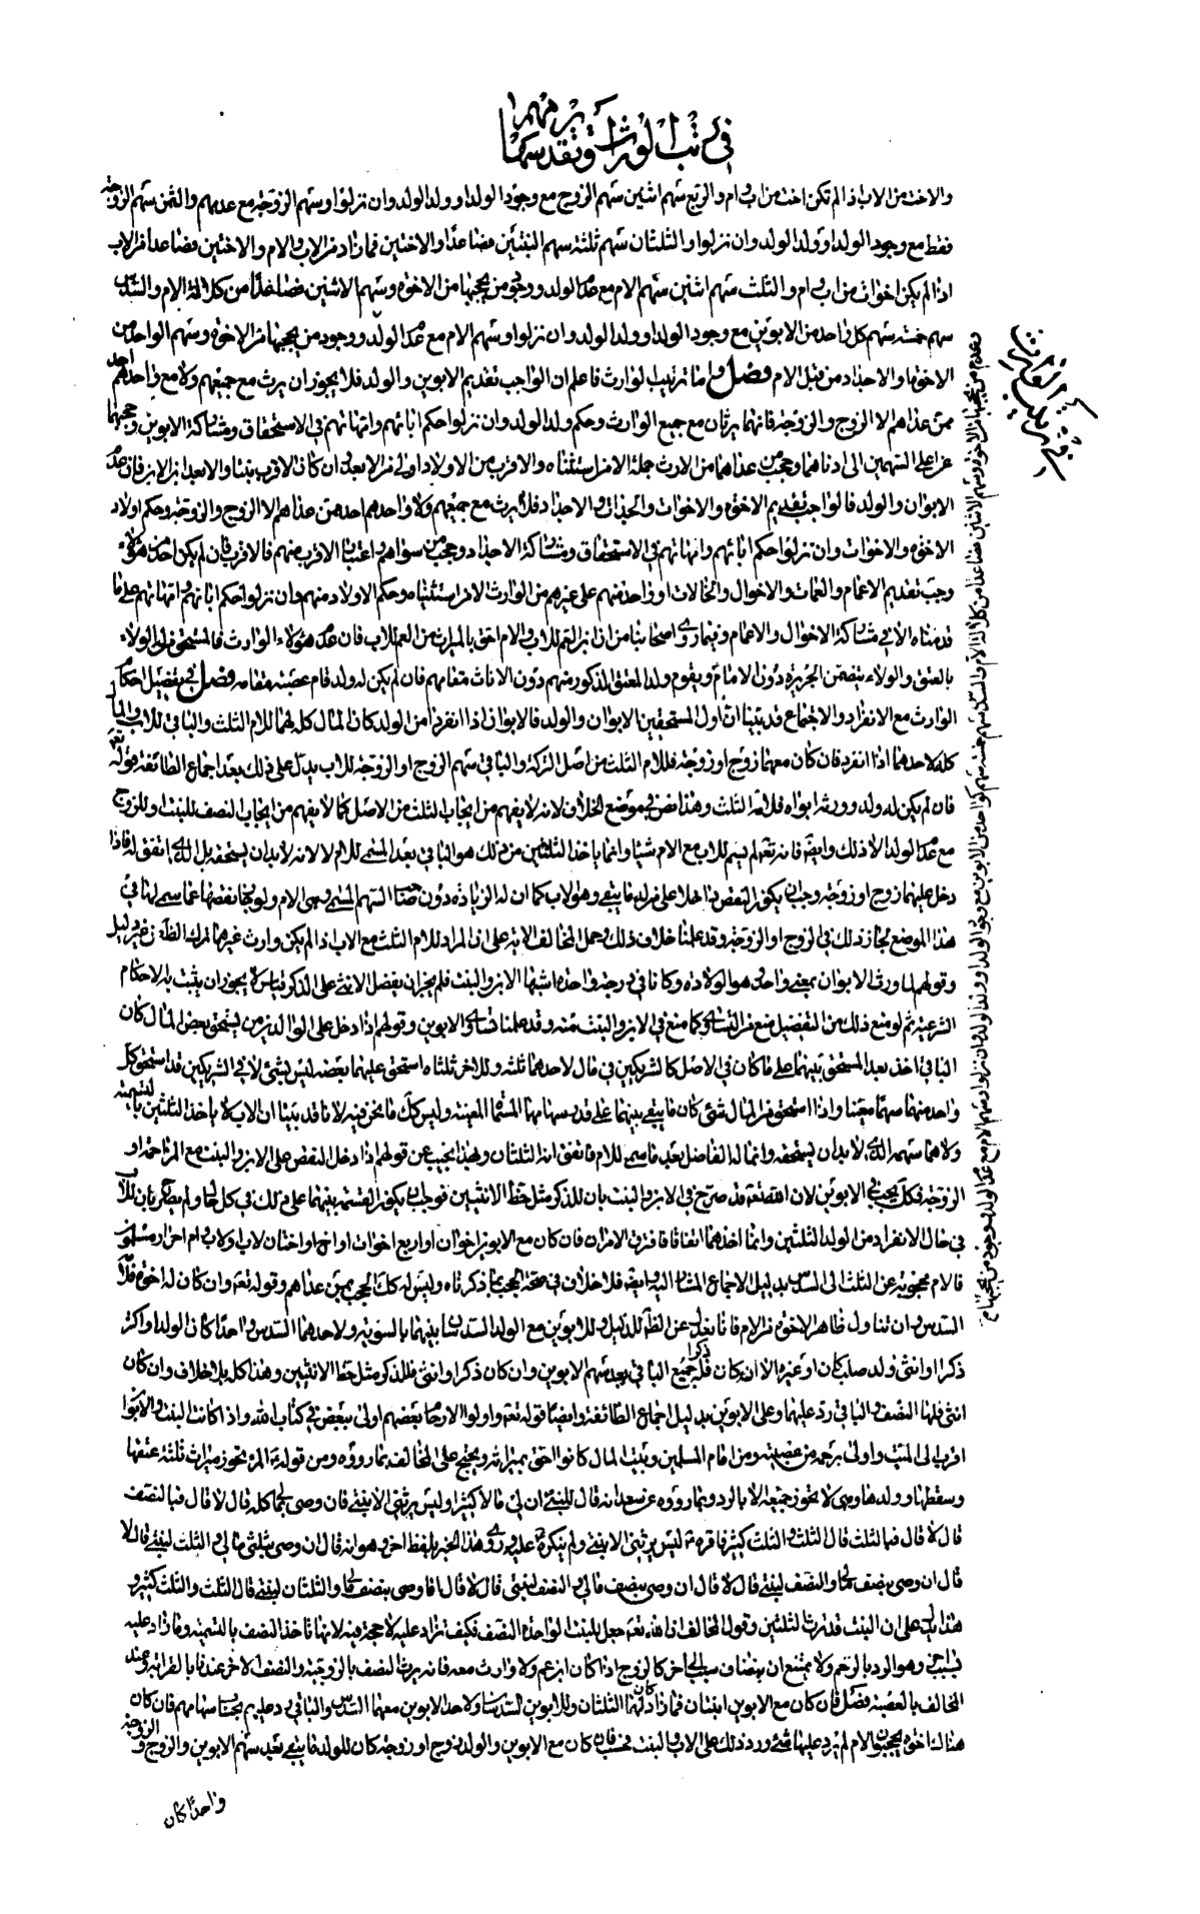 في ترتيب الوراث وتقديرسهامهم
والاخت من الاب اذا لم تكن اخت من اب وام والربع سهم اثنين سهم الزوج مع وجود الولد او ولد الولد وان نزلوا وسهم الزوجة مع عدمهم والثمن سهم الزوجة
فقط مع وجود الولد او ولد الولد وان نزلوا والثلثان سهم ثلثة سهم البنتين فصاعدا والاختين فما زاد من الاب والام والاختين فصاعدا من الاب
اذا لم يكن اخوات من اب وام والثلث سهم اثنين سهم الام مع عدم الولد ووجود من يحجبها من الاخوة وسهم الاثنين فصاعدا من كلالة الام والسدس
سهم خمسة سهم كل واحد من الابوين مع وجود الولد او ولد الولد وان نزلوا وسهم الام مع عدم الولد ووجود من يحجبها من الاخوة وسهم الواحد من
الاخوة او الاجداد من قبل الام فصل واما ترتيب الوارث فاعلم ان الواجب تقديم الابوين والولد فلا يجوز ان يرث مع جميعهم ولا مع واحدهم احد
ممن عداهم الا الزوج والزوجة فانهما يرثان مع جميع الوارث وحكم ولد الولد وان نزلوا حكم ابائهم وامهاتهم في الاستحقاق ومشاركة الابوين وحجبهما
عن اعلى السهمين الى ادناهما وحجب من عداهما من الارث جملة الا من استثناه والاقرب من الاولاد اولى من الابعد وان كان الاقرب بنتا والابعد ابن ابن فان عدم
الابوان والولد فالواجب تقديم الاخوة والاخوات والجدات والاجداد فلا يرث مع جميعهم ولا واحدهم احد ممن عداهم الا الزوج والزوجة وحكم اولاد
الاخوة والاخوات وان نزلوا حكم ابائهم وامهاتهم في الاستحقاق ومشاركة الاجداد وحجب من سواهم واعتبار الاقرب منهم فالاقرب فان لم يكن احد من هؤلاء
وجب تقديم الاعمام والعمات والاخوال والخالات او واحد منهم على غيرهم من الوارث الا من استثناه وحكم الاولاد منهم وان نزلوا حكم ابائهم وامهاتهم على ما
قدمناه الا في مشاركة الاخوال والاعمام وفيما روى اصحابنا من ان ابن العم للاب والام احق بالميراث من العم للاب فان عدم هؤلاء الوارث فالمستحق ذوالولاء
بالعتق والولاء بتضمن الجريرة دون الامام ويقوم ولد المعتق الذكور منهم دون الاناث مقامهم فان لم يكن له ولد قام عصبته مقامه فصل في تفصيل احكام
الوارث مع الانفراد والاجتماع قد بينا ان اول المستحقين الابوان والولد فالابوان اذا انفردا من الولد كان المال كله لهما للام الثلث والباقي للاب والمال
كله لاحدهما اذا انفرد فان كان معهما زوج او زوجة فللام الثلث من اصل التركة والباقي بعد سهم الزوج او الزوجة للاب يدل على ذلك بعد اجماع الطائفة قوله تعالى
فان لم يكن له ولد وورثه ابواه فلامه الثلث وهذا نص في موضع الخلاف لانه لا يفهم من ايجاب الثلث من الاصل كما لا يفهم من ايجاب النصف للبنت وللزوج
مع عدم الولد الا ذلك وايضا فانه تعالى لم يسم للاب مع الام شيئا وانما ياخذ الثلثين من ذلك هو الباقي بعد المسمى للام لا لانه لابد ان يستحقه بل الذي اتفق له فاذا
دخل عليهما زوج او زوجة وجب ان يكون النقص داخلا على من له ما يبقى وهو الاب كما ان له الزيادة دون صاحب السهم المسمى وهي الام ولو جاز نقصها عما سمى لها في
هذا الموضع لجاز ذلك في الزوج او الزوجة وقد علمنا خلاف ذلك وحمل المخالف الاية على ان المراد للام الثلث مع الاب اذا لم يكن وارث غيرهما ترك الظاهر من غير دليل
وقولهم لما ورث الابوان بمعنى واحد هو الولادة وكانا في درجة واحدة اشبها الابن والبنت فلم يجز ان يفضل الانثى على الذكر قياس لا يجوز ان يثبت به الاحكام
الشرعية ثم لو منع ذلك من التفضيل منع من التساوي كما منع في الابن والبنت منه وقد علمنا تساوى الابوين وقولهم اذا دخل على الوالدين من يستحق بعض المال كان
الباقي اخذ بعد المستحق بينهما على ما كان في الاصل كالشريكين في مال لاحدهما ثلثه وللاخر ثلثاه استحق عليهما بعضه ليس بشئ لان الشريكين قد استحق كل
واحد منهما سهما معينا واذا استحق من المال شئ كان ما يبقى بينهما على قدر سهامهما المسماة المعينة وليس كك ما نحن فيه لانا قد بينا ان الاب لا ياخذ الثلثين بالتسمية
ولا هما سهمه الذي لابد ان يستحقه وانما له الفاضل بعد ما سمى للام فاتفق انه الثلثان وبهذا يجيب عن قولهم اذا دخل النقص على الابن والبنت مع المزاحمة او
الزوجة فكك يجب في الابوين لان الله تعالى قد صرح في الابن والبنت بان للذكر مثل حظ الانثيين فوجب ان يكون القسمة بينهما على ذلك في كل حال ولم يصرح بان للاب
في حال الانفراد من الولد الثلثين وانما اخذهما اتفاقا فافترق الامران فان كان مع الابوين اخوان او اربع اخوات او اخ واختان لاب او لاب وام احرار مسلمون
فالام محجوبة عن الثلث الى السدس بدليل الاجماع المشار اليه وايضا فلا خلاف في صحة الحجب بمن ذكرناه وليس كك الحجب بمن عداهم وقوله تعالى وان كان له اخوة فلامه
السدس وان تناول ظاهر الاخوة من الام فانا نعدل عن الظاهر للدليل وللابوين مع الولد السدسان بينهما بالسوية ولاحدهما السدس واحدا كان الولد او اكثر
ذكرا او انثى ولد صلب كان او غيره الا انه ان كان ذكرا فله جميع الباقي بعد سهم الابوين وان كان ذكرا وانثى فللذكر مثل حظ الانثيين وهذا كله بلا خلاف وان كان
انثى فلها النصف والباقي رد عليها وعلى الابوين بدليل اجماع الطائفة وايضا قوله تعالى واولوا الارحام بعضهم اولى ببعض في كتاب الله واذا كانت البنت والابوان
اقرب الى الميت واولى برحمه من عصبته ومن امام المسلمين وبيت المال كانوا احق بميراثه ويحتج على المخالف بما رووه ومن قوله المرأة تحوز ميراث ثلثة عتيقها
وسقيطها وولدها وهي لا تحوز جميعه الا بالرد وبما رووه عن سعد انه قال للنبي ان لي مالا كثيرا وليس يرثني الا بنتي فان اوصي بمالي كله قال لا قال فبالنصف
قال لا قال فبالثلث قال الثلث والثلث كثير فاقره ليس يرثني الا بنتي ولم ينكره عليه وروى هذا الخبر بلفظ اخر وهو انه قال ان اوصي بثلثي مالي والثلث لبنتي قال لا
قال ان اوصي بنصف مالي والنصف لبنتي قال لا قال ان اوصي بنصف مالي والنصف لبنتي قال لا قال افاوصي بنصف مالي والثلثان لبنتي قال الثلث والثلث كثير و
هذا يدل على ان البنت قد ترث الثلثين وقول المخالف ان الله تعالى جعل للبنت الواحدة النصف فكيف تزاد عليه لا حجة فيه لانها تاخذ النصف بالتسمية وما زاد عليه
بسبب اخر وهو الرد بالرحم ولا يمتنع ان ينضاف سبب الى اخر كالزوج اذا كان ابن عم ولا وارث معه فانه يرث النصف بالزوجية والنصف الاخر عندنا بالقرابة وعند
المخالف بالعصبة فصل فان كان مع الابوين ابنتان فما زاد كان لهما الثلثان وللابوين السدسان ولاحد الابوين معهما السدس والباقي رد عليهم بحساب سهامهم فان كان
هناك اخوة يحجبون الام لم يرد عليها شئ ورد ذلك على الاب والبنت فحسب فان كان مع الابوين والولد زوج او زوجة كان للولد ما يبقى بعد سهم الابوين والزوج او الزوجة
واحدا كان
وعدم من يحجبها من الاخوة وسهم الاثنين فصاعدا من كلالة الام والسدس سهم خمسة سهم كل واحد من الابوين مع وجود الولد او ولد الولد وان نزلوا وسهم الام مع عدم الولد ووجود من يحجبها م